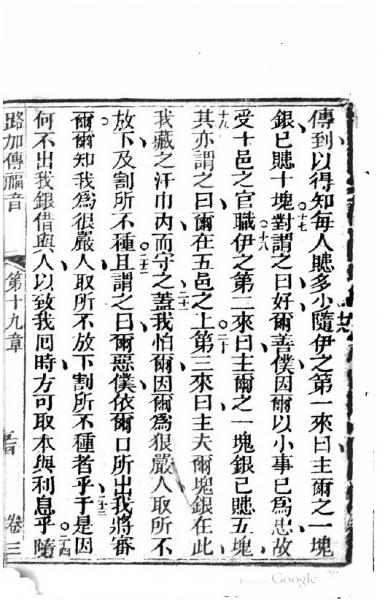 傳到以得知每人賺多少隨伊之第一來曰主爾之一塊
十七
銀已賺十塊對謂之曰好爾善僕因爾以小事已為忠故
十八
受十邑之官職伊之第二來曰主爾之一塊銀已賺五塊
十九
其亦謂之曰爾在五邑之上第三來曰主夫爾塊銀在此
二十
我藏之汗巾內而守之蓋我怕爾因爾為狠嚴人取所不
二十一
放下及割所不種且謂之曰爾惡僕依爾口所出我將審
二十二
爾爾知我為很嚴人取所不放下割所不種者乎于是因
二十三
何不出我銀借與人以致我囘時方可取本與利息乎隨
二十四
路加傳福音
第十九章
卷三
Google